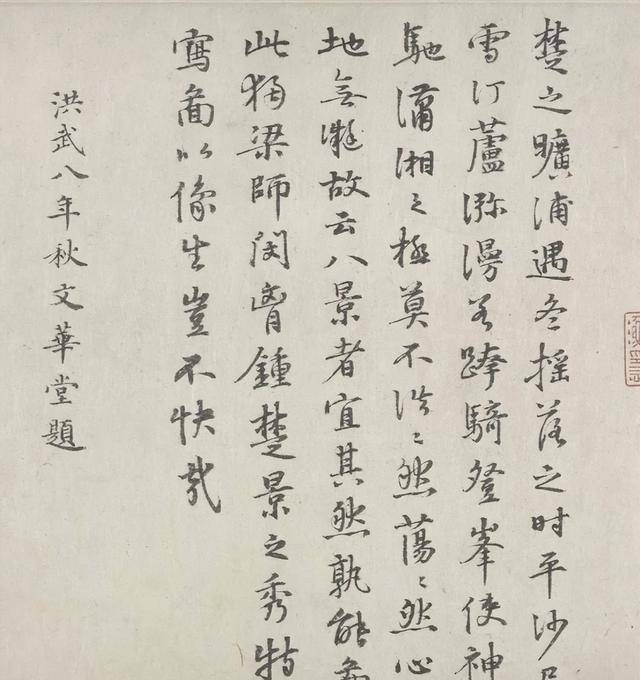 楚之曠浦遇冬搖落之時平沙
雪汀蘆㳽漫若跨騎登峯使神
馳瀟湘之極莫不洪〻然蕩〻然心
地無凝故云八景者宜其然孰能
此獨梁師閔胷鍾楚景之秀特
寫圖以像生豈不快哉
洪武八年秋文華堂題